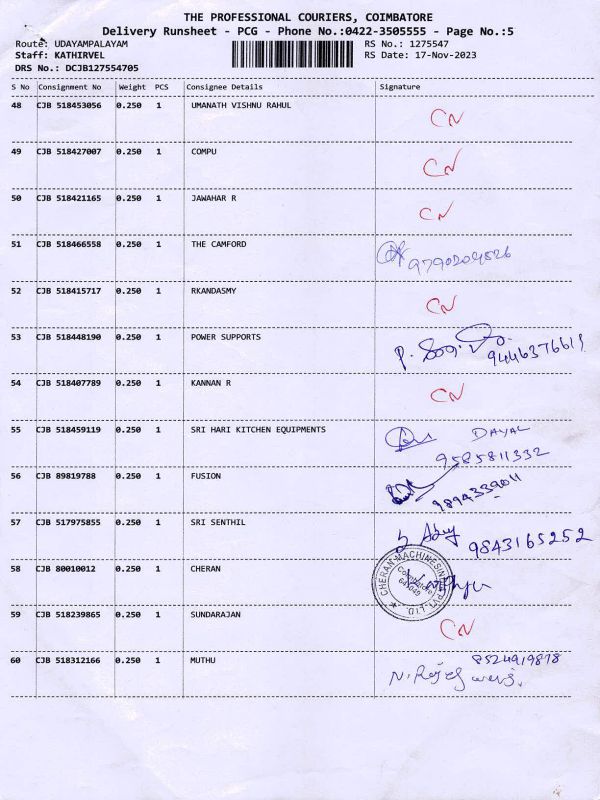 THE PROFESSIONAL COURIERS, COIMBATORE
Delivery Runsheet - PCG - Phone No.:0422-3505555 - Page No.:5
Route: UDAYAMPALAYAM RS No.: 1275547
Staff: KATHIRVEL RS Date: 17-Nov-2023
DRS No.: DCJB127554705
S No Consignment No Weight PCS Consignee Details Signature
48 CJB 518453056 0.250 1 UMANATH VISHNU RAHUL CN
49 CJB 518427007 0.250 1 COMPU CN
50 CJB 518421165 0.250 1 JAWAHAR R CN
51 CJB 518466558 0.250 1 THE CAMFORD 9790204526
52 CJB 518415717 0.250 1 RKANDASMY CN
53 CJB 518448190 0.250 1 POWER SUPPORTS 9446376611
54 CJB 518407789 0.250 1 KANNAN R CN
55 CJB 518459119 0.250 1 SRI HARI KITCHEN EQUIPMENTS DAYAL
9585811332
56 CJB 89819788 0.250 1 FUSION 9894339011
57 CJB 517975855 0.250 1 SRI SENTHIL 9843165252
58 CJB 80010012 0.250 1 CHERAN
59 CJB 518239865 0.250 1 SUNDARAJAN CN
60 CJB 518312166 0.250 1 MUTHU 8524919878